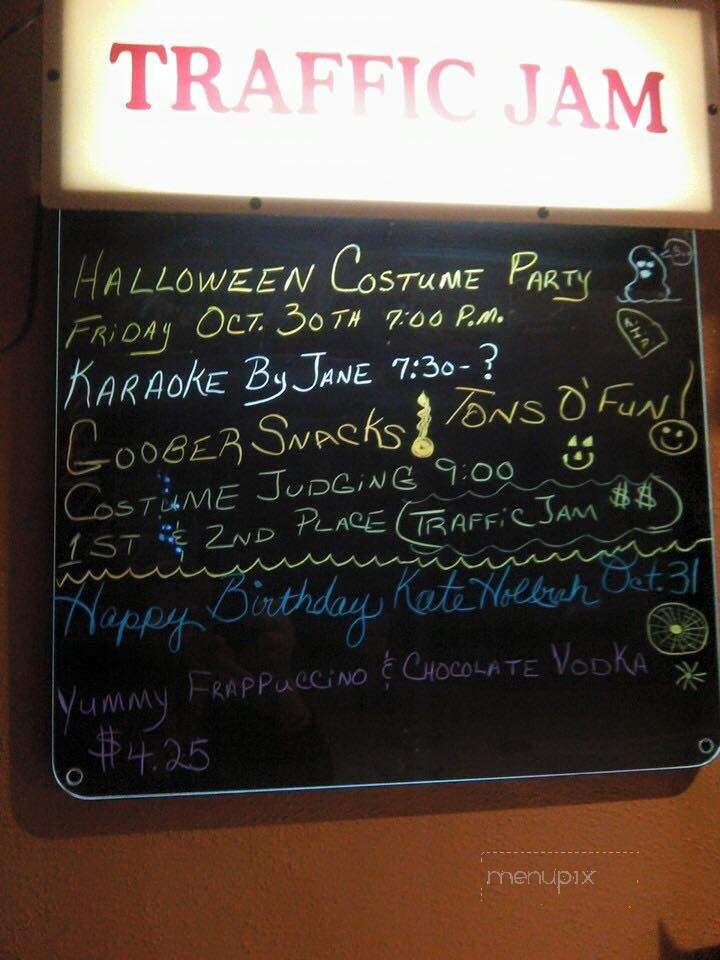 TRAFFIC JAM
HALLOWEEN COSTUME PARTY
FRIDAY OCT. 30TH 7:00 P.M.
KARAOKE BY JANE 7:30-?
GOOBER SNACKS! TONS O'FUN!
COSTUME JUDGING 9:00
1ST & 2ND PLACE (TRAFFIC JAM $$)
Happy Birthday Kate Oct. 31
YUMMY FRAPPUCCINO & CHOCOLATE VODKA
$4.25
menupix